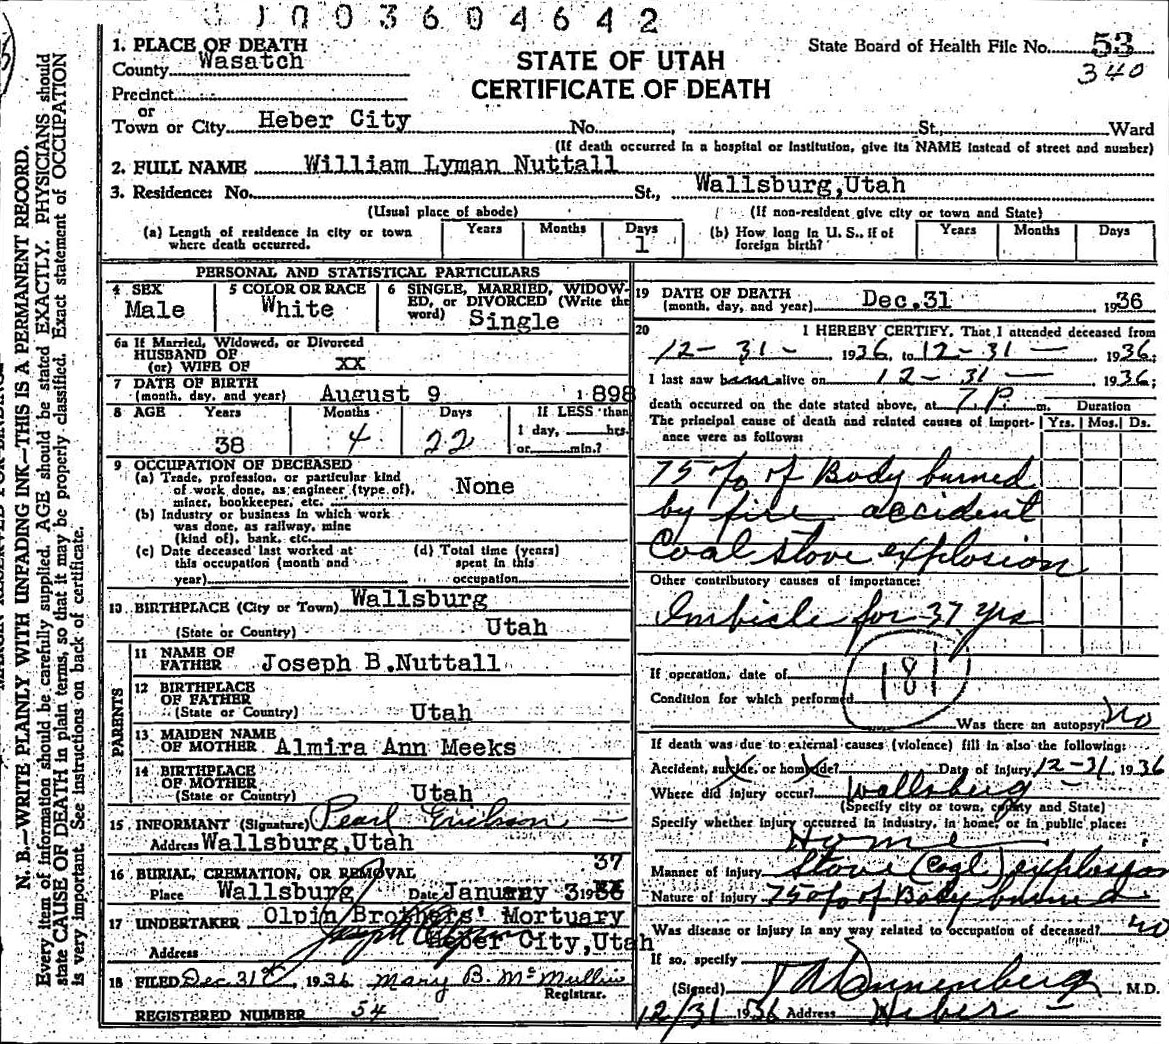 1003604642
N. B.—WRITE PLAINLY WITH UNFADING INK—THIS IS A PERMANENT RECORD.
Every item of information should be carefully supplied. AGE should be stated EXACTLY. PHYSICIANS should
state CAUSE OF DEATH in plain terms, so that it may be properly classified. Exact statement of OCCUPATION
is very important. See instructions on back of certificate.
STATE OF UTAH
CERTIFICATE OF DEATH
State Board of Health File No. 53
340
1. PLACE OF DEATH
County Wasatch
Precinct
or
Town or City Heber City No. , St., Ward
(If death occurred in a hospital or institution, give its NAME instead of street and number)
2. FULL NAME William Lyman Nuttall
3. Residence: No. St., Wallsburg,Utah
(Usual place of abode) (If non-resident give city or town and State)
(a) Length of residence in city or town where death occurred. Years Months Days 1
(b) How long in U. S., if of foreign birth? Years Months Days
PERSONAL AND STATISTICAL PARTICULARS
4 SEX Male
5 COLOR OR RACE White
6 SINGLE, MARRIED, WIDOWED, or DIVORCED (Write the word) Single
6a If Married, Widowed, or Divorced
HUSBAND OF
(or) WIFE OF XX
7 DATE OF BIRTH
(month, day, and year) August 9 1898
8 AGE Years Months Days If LESS than
38 4 22 1 day, hrs.
or min.?
9 OCCUPATION OF DECEASED
(a) Trade, profession, or particular kind
of work done, as engineer (type of),
miner, bookkeeper, etc. None
(b) Industry or business in which work
was done, as railway, mine
(kind of), bank, etc.
(c) Date deceased last worked at
this occupation (month and
year)
(d) Total time (years)
spent in this
occupation
10 BIRTHPLACE (City or Town) Wallsburg
(State or Country) Utah
PARENTS
11 NAME OF
FATHER Joseph B.Nuttall
12 BIRTHPLACE
OF FATHER
(State or Country) Utah
13 MAIDEN NAME
OF MOTHER Almira Ann Meeks
14 BIRTHPLACE
OF MOTHER
(State or Country) Utah
15 INFORMANT (Signature) Pearl Erickson
Address Wallsburg,Utah
16 BURIAL, CREMATION, OR REMOVAL 37
Place Wallsburg Date January 3 1936
17 UNDERTAKER Olpin Brothers' Mortuary
Address Heber City,Utah
18 FILED Dec 31st, 1936 Mary B. McMullin
Registrar.
REGISTERED NUMBER 54
19 DATE OF DEATH
(month, day, and year) Dec.31 1936
20 I HEREBY CERTIFY, That I attended deceased from
12-31-, 1936, to 12-31-, 1936;
I last saw him alive on 12-31-, 1936;
death occurred on the date stated above, at 7 P. m. Duration
The principal cause of death and related causes of importance were as follows: Yrs. Mos. Ds.
75% of Body burned
by fire accident
Coal stove explosion
Other contributory causes of importance:
Imbicle for 37 yrs
181
If operation, date of
Condition for which performed
Was there an autopsy? No
If death was due to external causes (violence) fill in also the following:
Accident, suicide, or homicide? Date of injury 12-31, 1936
Where did injury occur? Wallsburg
(Specify city or town, county and State)
Specify whether injury occurred in industry, in home, or in public place:
Home
Manner of injury Stove (Coal) explosion
Nature of injury 75% of Body burned
Was disease or injury in any way related to occupation of deceased? No
If so, specify
(Signed) M.D.
12/31 1936 Address Heber